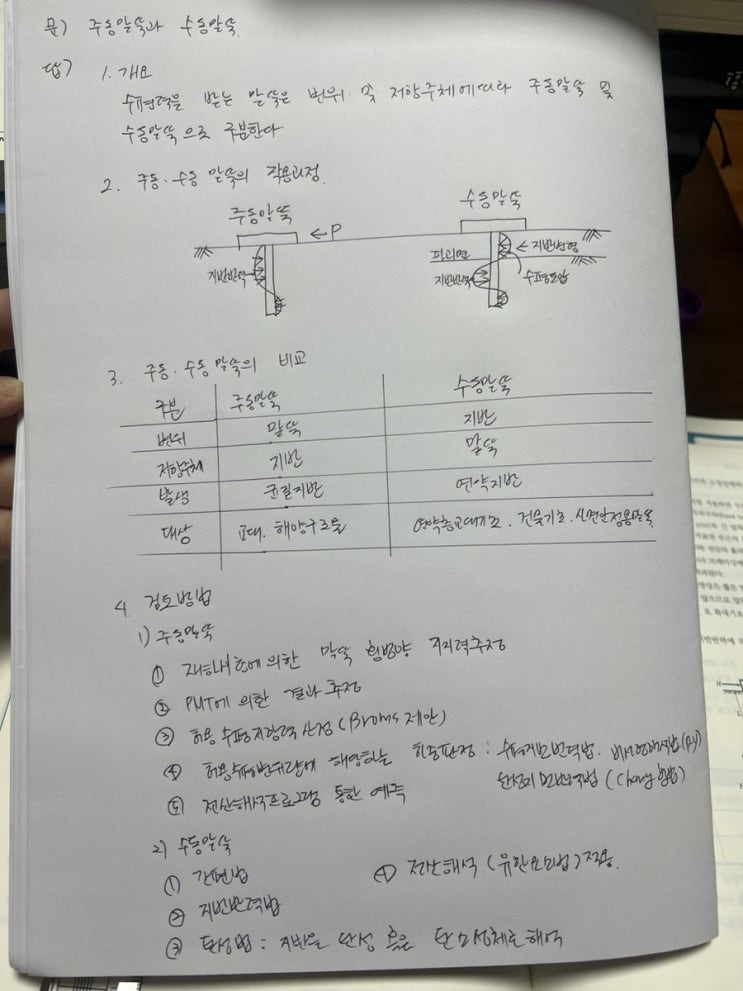 문) 주동말뚝과 수동말뚝.
답) 1. 개요
수평력을 받는 말뚝은 변위 및 저항주체에 따라 주동말뚝 및
수동말뚝으로 구분한다
2. 주동·수동 말뚝의 작용과정.
주동말뚝
← P
지반반력
수동말뚝
← 지반변형
파괴면
지반반력
수평토압
3. 주동·수동 말뚝의 비교
구분 주동말뚝 수동말뚝
변위 말뚝 지반
저항주체 지반 말뚝
발생 균질지반 연약지반
대상 교대. 해양구조물 연약층교대기초. 건물기초. 사면안정용말뚝
4. 검토방법
1) 주동말뚝
① 재하시험에 의한 말뚝 횡방향 지지력추정
② PMT에 의한 결과 추정
③ 허용 수평저항력 산정 (Broms 제안)
④ 허용수평변위량에 해당하는 하중판정 : 수평지반반력법. 비선형해석법(p-y)
탄성지반반력법 (Chang 방법)
⑤ 전산해석프로그램 통한 예측
2) 수동말뚝
① 간편법
② 지반반력법
③ 탄성법 : 지반을 탄성 혹은 탄소성체로 해석
④ 전산해석 (유한요소법) 적용.